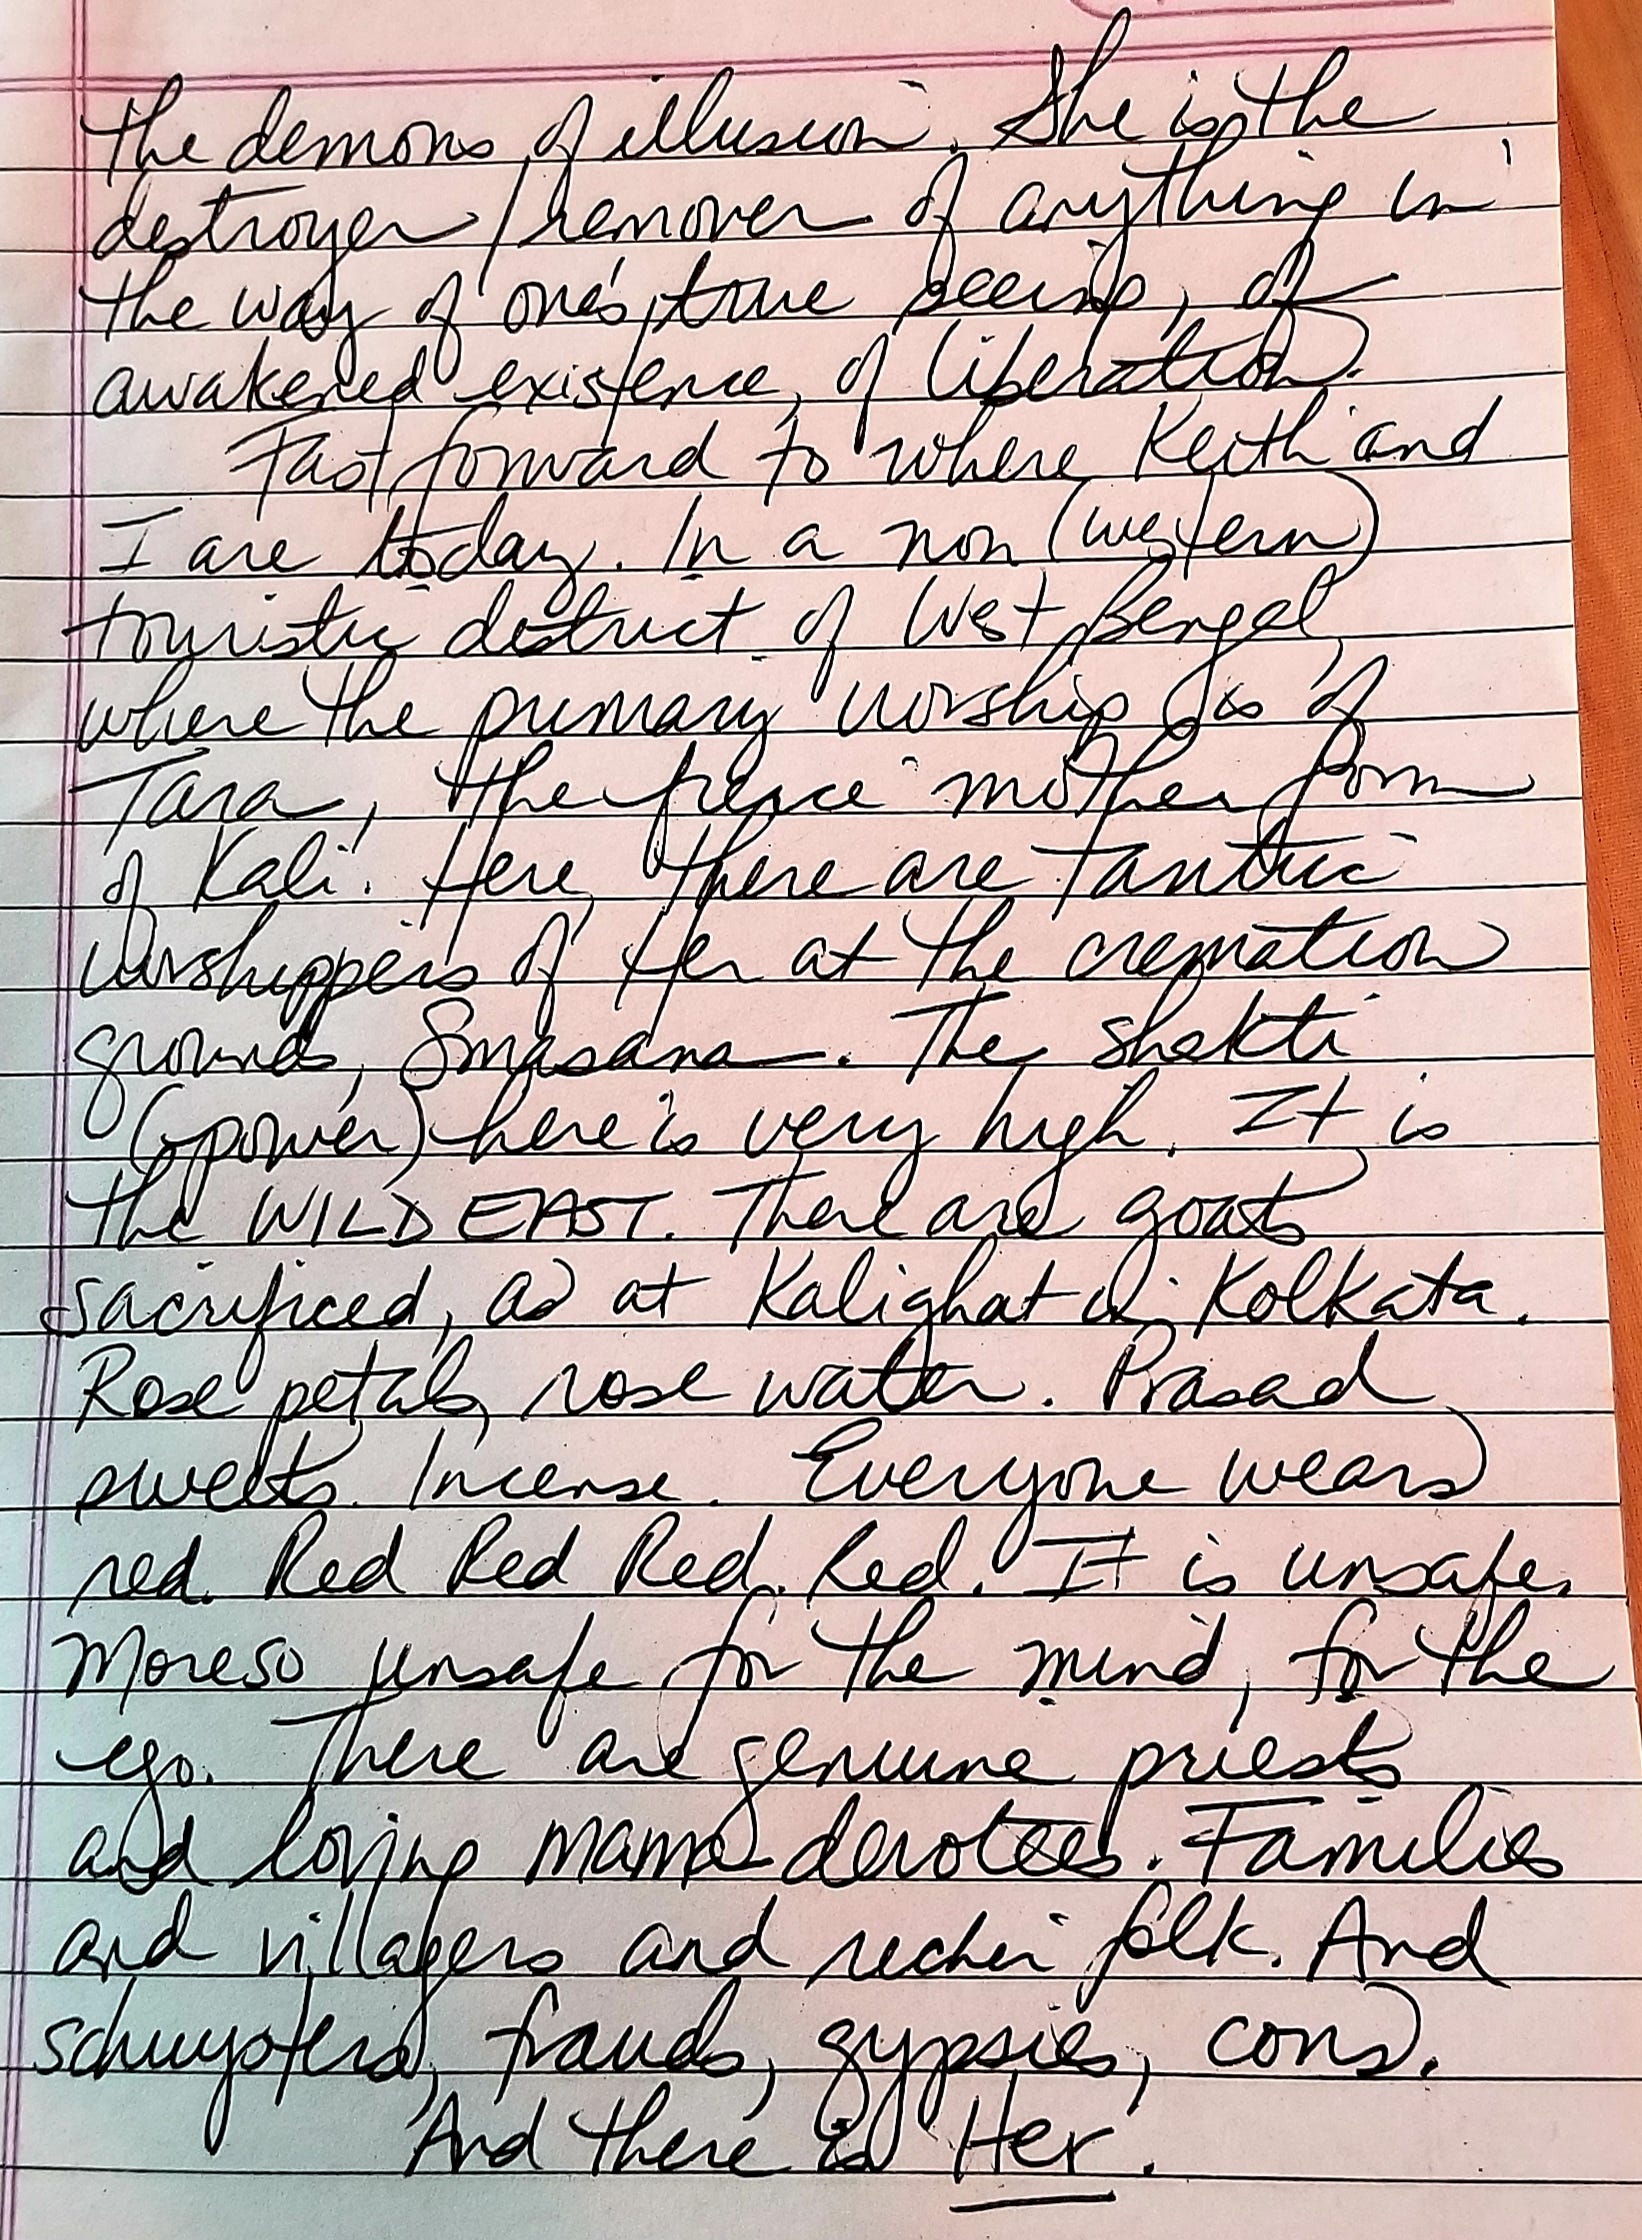 the demons of illusion. She is the
destroyer/remover of anything in
the way of one's true seeing, of
awakened existence, of liberation.
Fast forward to where Keith and
I are today. In a non (western)
touristic district of West Bengal,
where the primary worship is of
Tara, the fierce mother form
of Kali. Here, there are Tantric
worshippers of Her at the cremation
grounds, Smasana. The shakti
(power) here is very high. It is
the WILD EAST. There are goats
sacrificed, as at Kalighat in Kolkata.
Rose petals, rose water. Prasad
sweets. Incense. Everyone wears
red. Red Red Red. Red. It is unsafe.
Moreso unsafe for the mind, for the
ego. There are genuine priests
and loving mama devotees. Families
and villagers and richer folk. And
schuysters, frauds, gypsies, cons.
And there is Her.